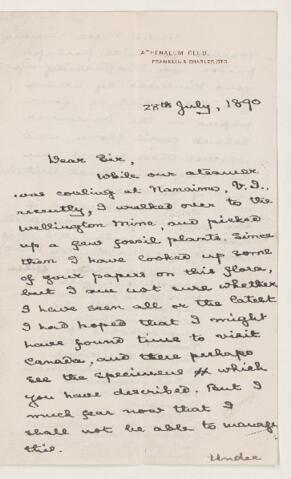 ATHENAEUM CLUB,
FRANKLIN & CHARLES STS.
28th July, 1890
Dear Sir,
While our steamer
was coaling at Nanaimo, V.I.,
recently, I walked over to the
Wellington Mine, and picked
up a few fossil plants. Since
then I have looked up some
of your papers on this flora,
but I am not sure whether
I have seen all or the latest
I had hoped that I might
have found time to visit
Canada, and there perhaps
see the specimens which
you have described. But I
much fear now that I
shall not be able to manage
this.
Under